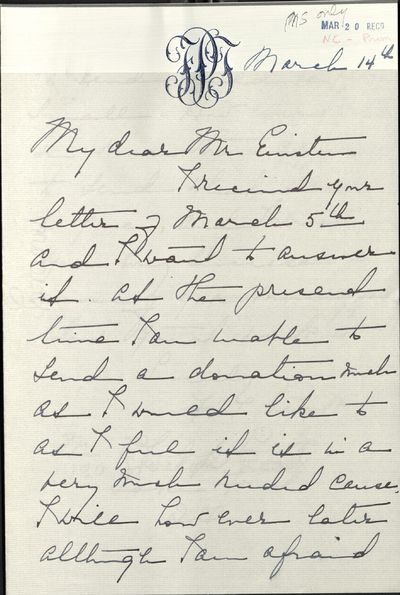 MS only
MAR 20 REC'D
March 14th
My dear Mr Einstein
I recieved your
letter of March 5th
and I want to answer
it. At the present
time I am unable to
send a donation much
as I would like to
as I feel it is in a
very much needed cause.
I will how ever later
although I am afraid